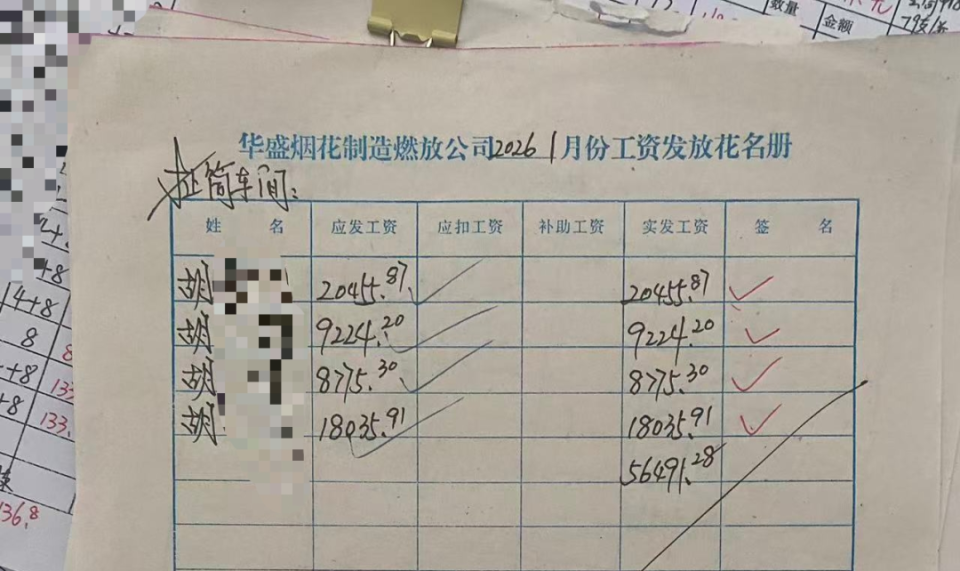 数量
金额
华盛烟花制造燃放公司2026 1月份工资发放花名册
筒车间:
姓 名 应发工资 应扣工资 补助工资 实发工资 签 名
胡 20455.87 20455.87
胡 9224.20 9224.20
胡 8775.30 8775.30
胡 18035.91 18035.91
56491.28
+8
14+8
8
+8
+8 133.
36.8